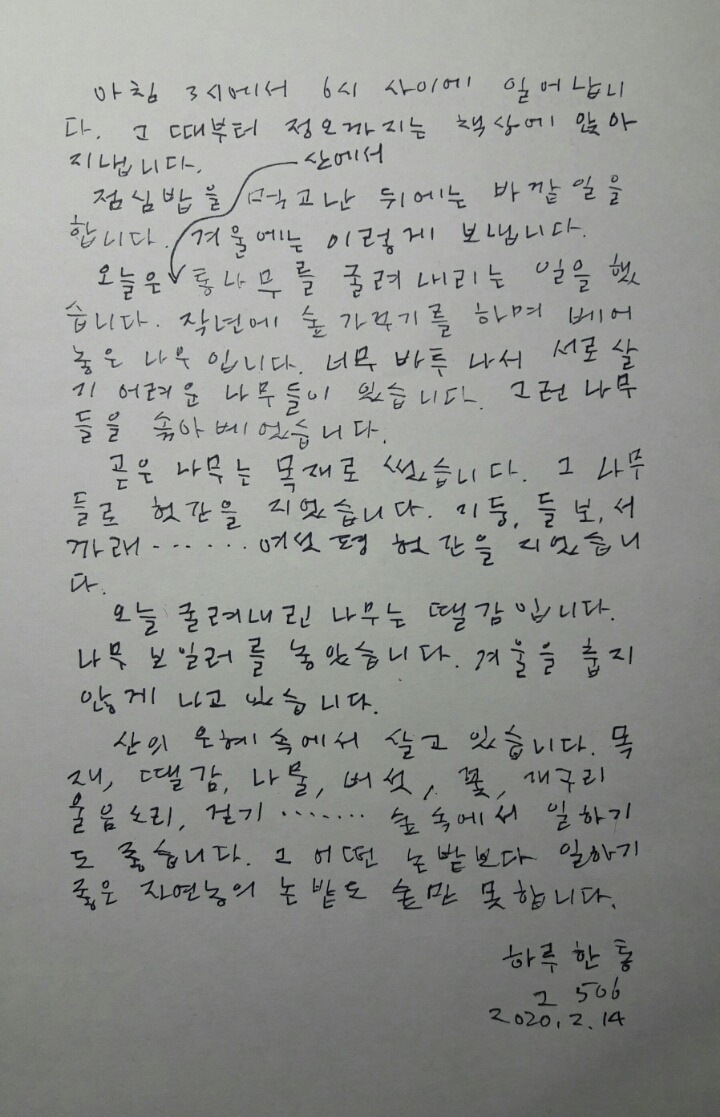 아침 3시에서 6시 사이에 일어납니
다. 그 때부터 정오까지는 책상에 앉아
지냅니다.
산에서
점심밥을 먹고난 뒤에는 바깥일을
합니다. 겨울에는 이렇게 보냅니다.
오늘은 통나무를 굴려 내리는 일을 했
습니다. 작년에 숲 가꾸기를 하며 베어
놓은 나무입니다. 너무 바투 나서 서로 살
기 어려운 나무들이 있습니다. 그런 나무
들을 솎아베었습니다.
곧은 나무는 목재로 썼습니다. 그 나무
들로 헛간을 지었습니다. 기둥, 들보, 서
까래······ 여섯 평 헛간을 지었습니
다.
오늘 굴려내린 나무는 땔감입니다.
나무 보일러를 놓았습니다. 겨울을 춥지
않게 나고 있습니다.
산의 은혜 속에서 살고 있습니다. 목
재, 땔감, 나물, 버섯, 꽃, 개구리
울음소리, 걷기 ······· 숲 속에서 일하기
도 좋습니다. 그 어떤 논밭보다 일하기
좋은 자연농의 논밭도 숲만 못합니다.
하루 한 통
그 506
2020. 2. 14